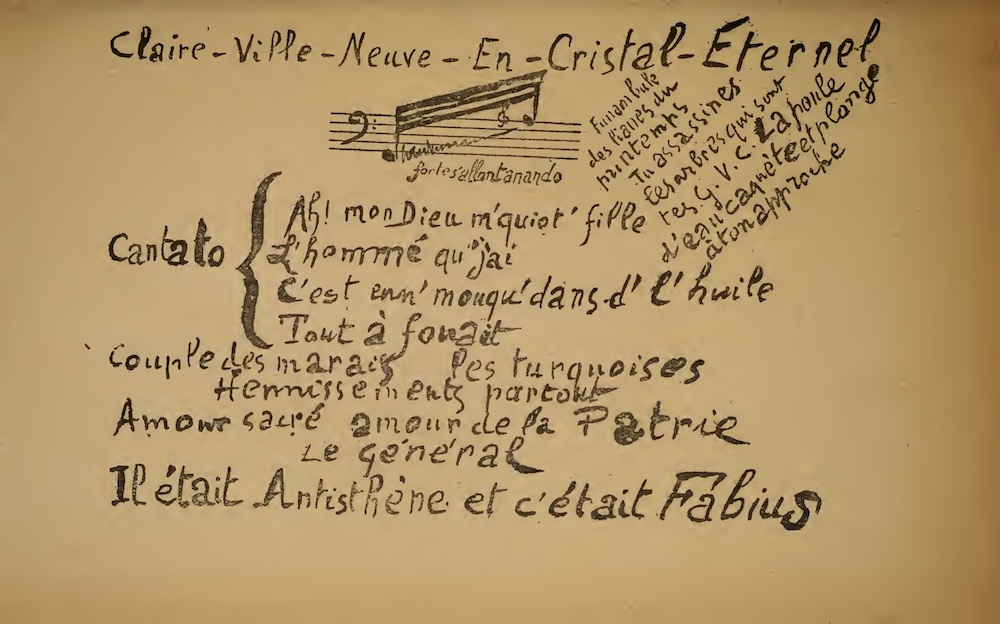 Claire-Ville-Neuve-En-Cristal-Éternel
fortes'allantanando
Funambule
des lianes du
printemps
Tu assassines
Les arbres qui sont
tes G. V. C. La poule
d'eau caquète et plonge
à ton approche
Cantato
Ah! mon Dieu m'quiot' fille
L'hommé qu'j'ai
C'est enn' mouqu' dans d' l'huile
Tout à fouait
Couple des marais les turquoises
Hennissements partout
Amour sacré amour de la Patrie
Le général
Il était Antisthène et c'était Fabius